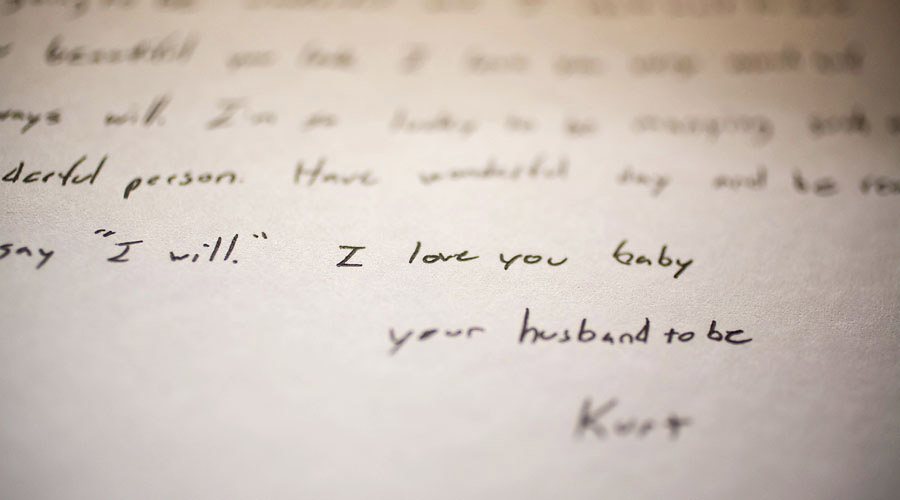 beautiful you look I love you very much and
ways will. I'm so lucky to be marrying such a
derful person. Have wonderful day and be rea
say "I will." I love you baby
your husband to be
Kurt